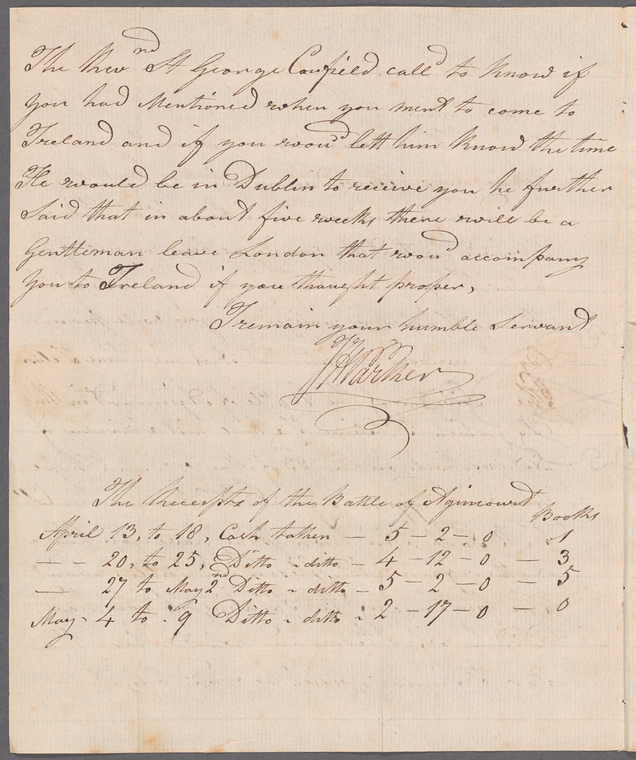 The Revnd St George Caufield calld to know if
you had Mentioned when you ment to come to
Ireland and if you woud lett him know the time
He would be in Dublin to receive you he further
Said that in about five weeks there will be a
Gentleman leave London that woud accompany
you to Ireland if you thought proper,
I remain your humble Servant
Parker
The Receipts of the Battle of Agincourt Books
April 13, to 18, Cash taken — 5 – 2 – 0 1
— – 20, to 25, Ditto – ditto – 4 – 12 – 0 – 3
— 27 to May 2nd Ditto – ditto – 5 – 2 – 0 – 5
May – 4 to 9 Ditto – ditto – 2 – 17 – 0 – 0